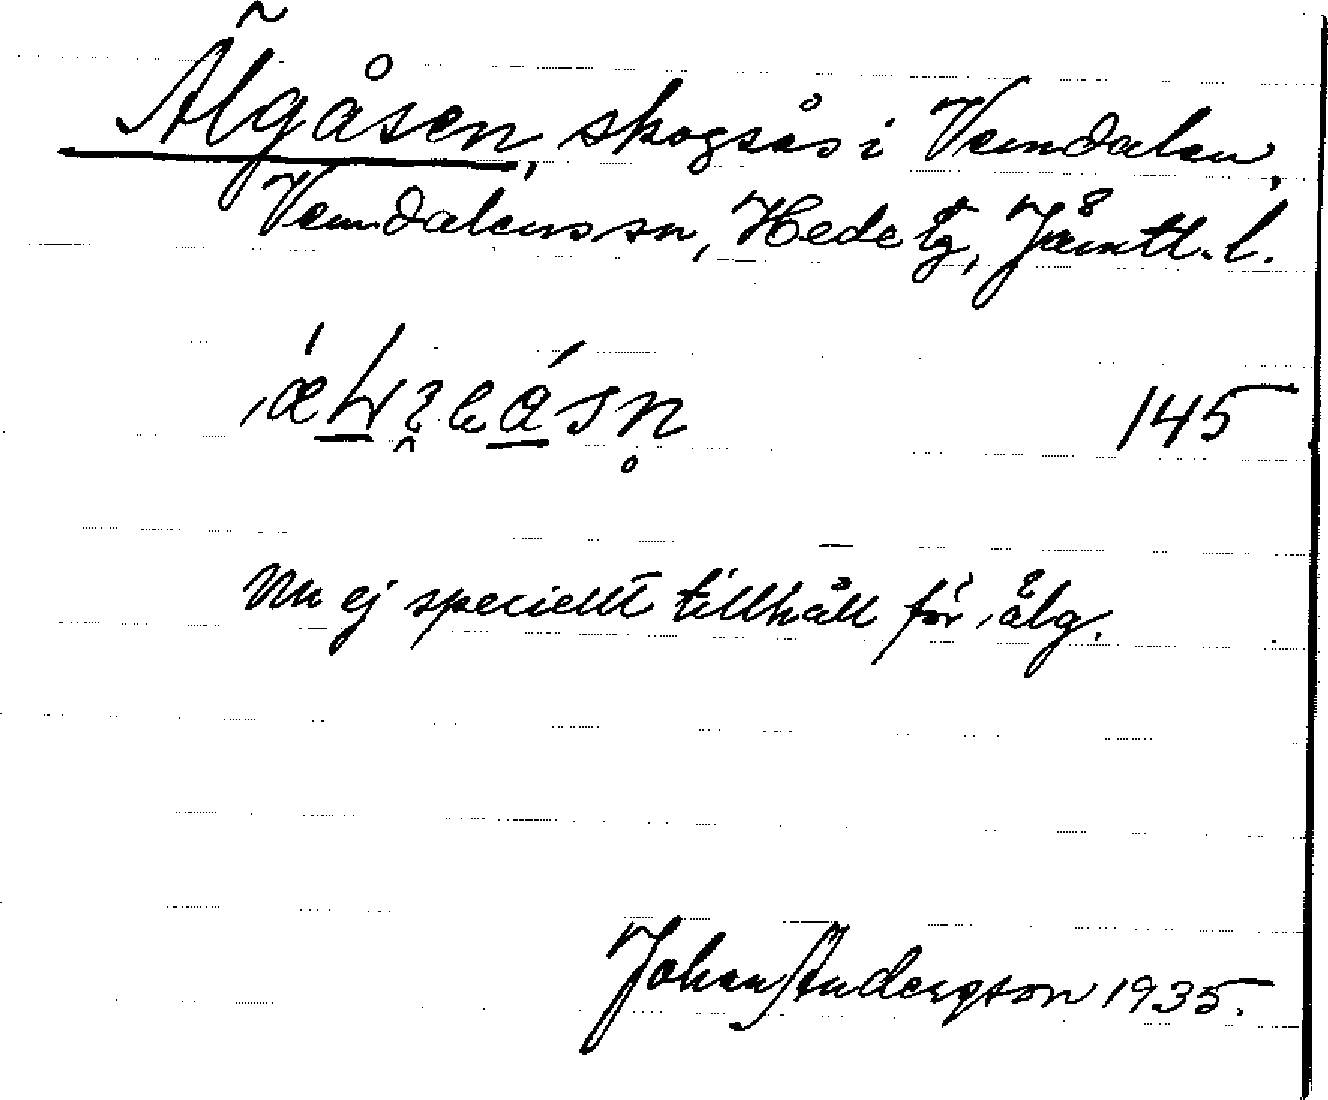 Älgåsen, skogsås i Vemdalen,
Vemdalens sn, Hede tg, Jämtl. l.
145
Nu ej speciellt tillhåll för älg.
Johan Anderson 1935.